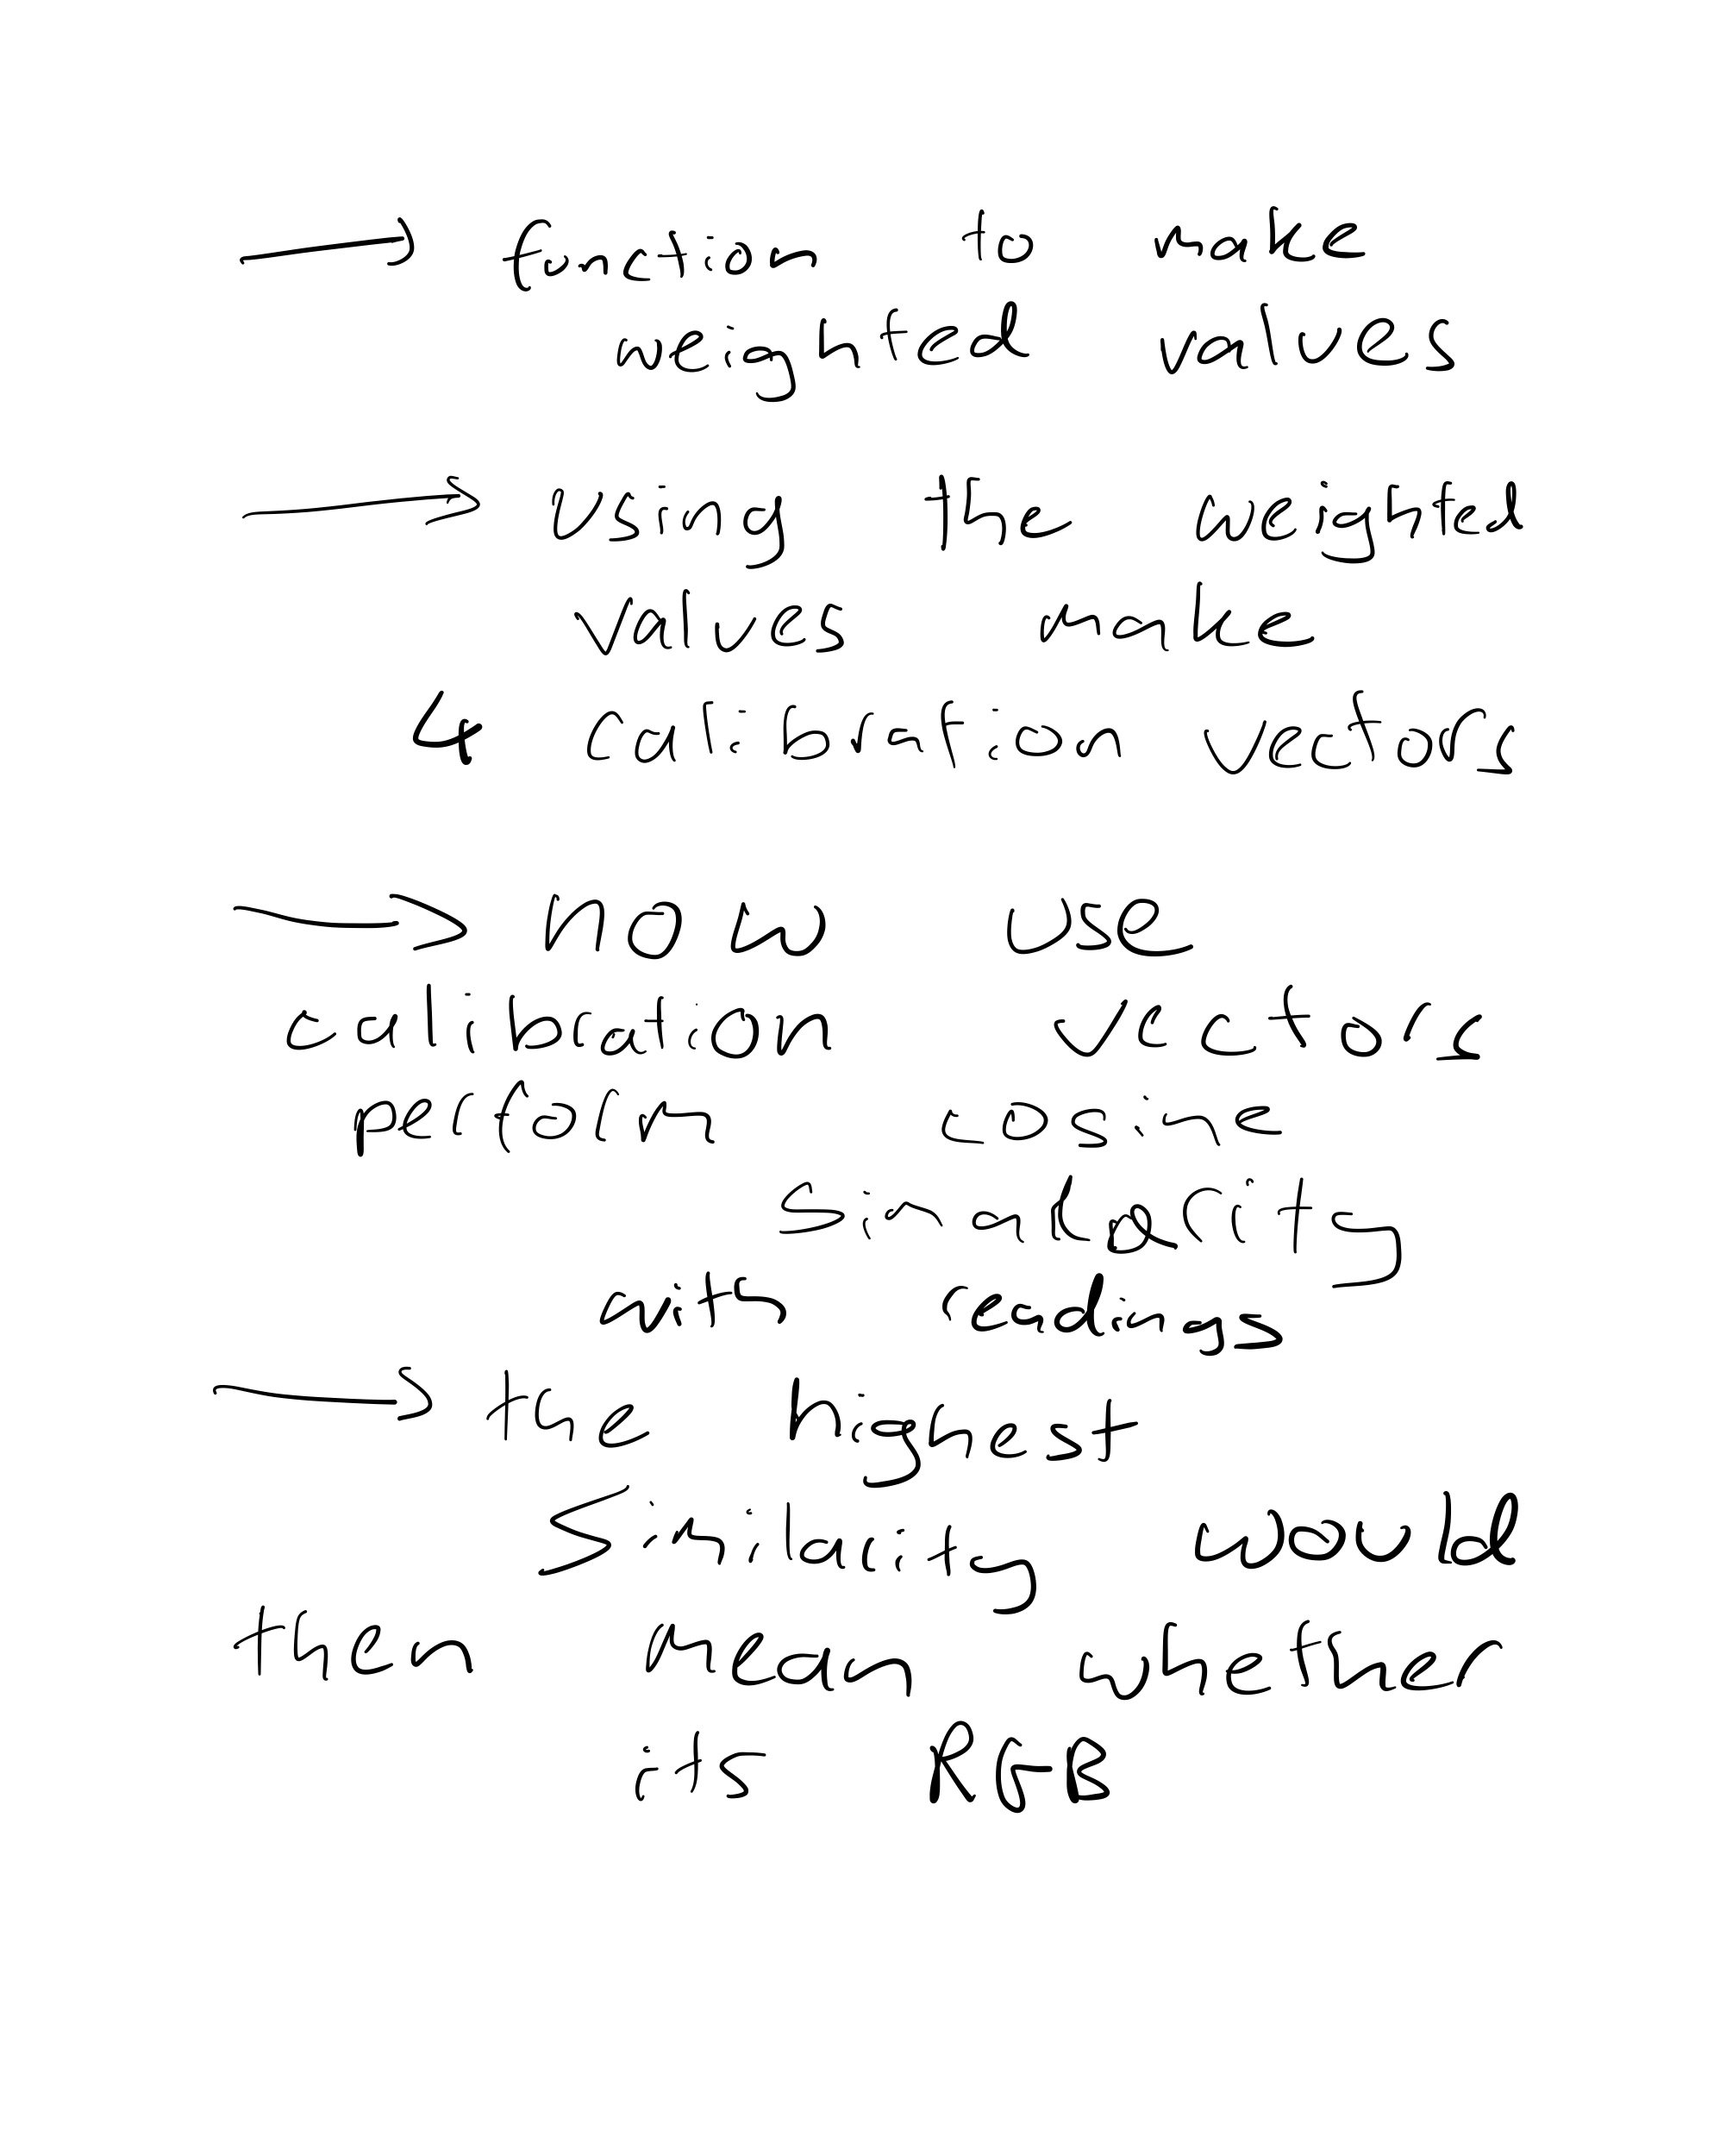 → function to make
weighted values
→ using the weighted
values make
4 calibration vectors
→ now use
calibration vectors
perform cosine
simalarity
with readings
→ the highest
Similarity would
then mean whether
its RGB